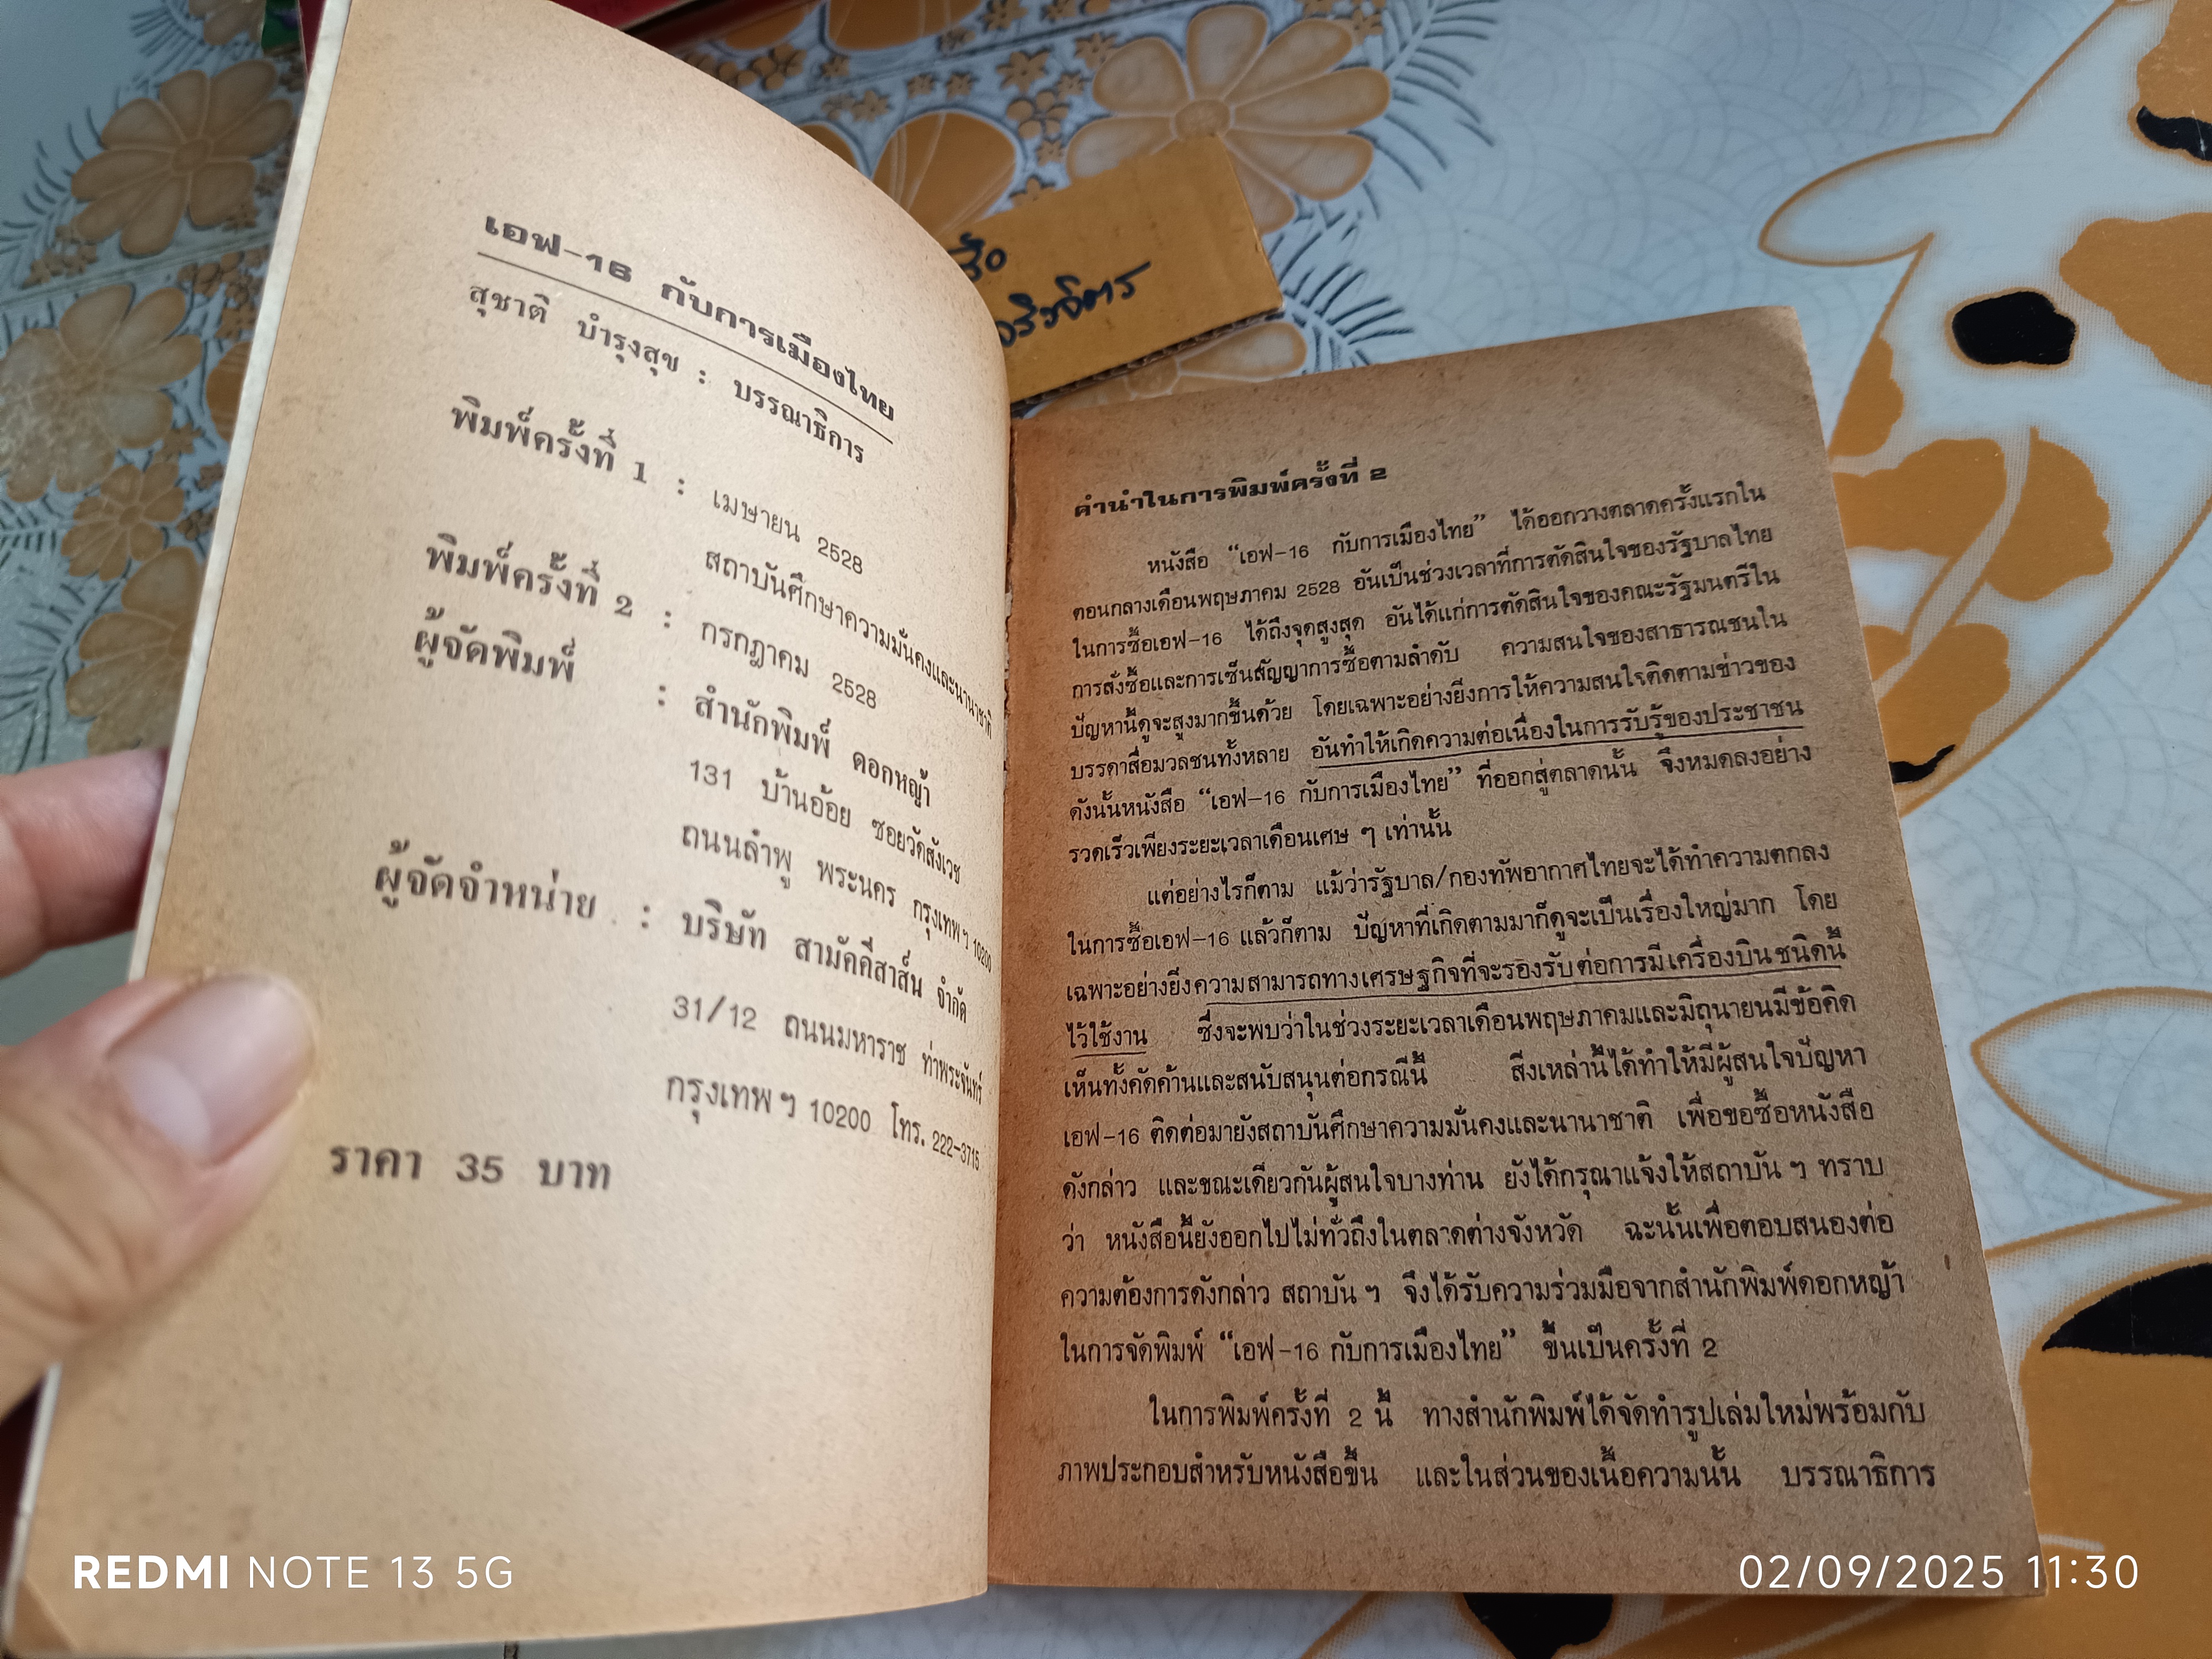 เอฟ-16 กับการเมืองไทย
สุชาติ บำรุงสุข : บรรณาธิการ
พิมพ์ครั้งที่ 1 : เมษายน 2528
สถาบันศึกษาความมั่นคงและนานาชาติ
พิมพ์ครั้งที่ 2 : กรกฎาคม 2528
ผู้จัดพิมพ์ : สำนักพิมพ์ ดอกหญ้า
131 บ้านอ้อย ซอยวัดสังเวช
ถนนลำพู พระนคร กรุงเทพฯ 10200
ผู้จัดจำหน่าย : บริษัท สามัคคีสาส์น จำกัด
31/12 ถนนมหาราช ท่าพระจันทร์
กรุงเทพฯ 10200 โทร. 222-3715
ราคา 35 บาท
คำนำในการพิมพ์ครั้งที่ 2
หนังสือ “เอฟ-16 กับการเมืองไทย” ได้ออกวางตลาดครั้งแรกใน
ตอนกลางเดือนพฤษภาคม 2528 อันเป็นช่วงเวลาที่การตัดสินใจของรัฐบาลไทย
ในการซื้อเอฟ-16 ได้ถึงจุดสูงสุด อันได้แก่การตัดสินใจของคณะรัฐมนตรีใน
การสั่งซื้อและการเซ็นสัญญาการซื้อตามลำดับ ความสนใจของสาธารณชนใน
ปัญหานี้ดูจะสูงมากขึ้นด้วย โดยเฉพาะอย่างยิ่งการให้ความสนใจติดตามข่าวของ
บรรดาสื่อมวลชนทั้งหลาย อันทำให้เกิดความต่อเนื่องในการรับรู้ของประชาชน
ดังนั้นหนังสือ “เอฟ-16 กับการเมืองไทย” ที่ออกสู่ตลาดนั้น จึงหมดลงอย่าง
รวดเร็วเพียงระยะเวลาเดือนเศษ ๆ เท่านั้น
แต่อย่างไรก็ตาม แม้ว่ารัฐบาล/กองทัพอากาศไทยจะได้ทำความตกลง
ในการซื้อเอฟ-16 แล้วก็ตาม ปัญหาที่เกิดตามมาก็ดูจะเป็นเรื่องใหญ่มาก โดย
เฉพาะอย่างยิ่งความสามารถทางเศรษฐกิจที่จะรองรับต่อการมีเครื่องบินชนิดนี้
ไว้ใช้งาน ซึ่งจะพบว่าในช่วงระยะเวลาเดือนพฤษภาคมและมิถุนายนมีข้อคิด
เห็นทั้งคัดค้านและสนับสนุนต่อกรณีนี้ สิ่งเหล่านี้ได้ทำให้มีผู้สนใจปัญหา
เอฟ-16 ติดต่อมายังสถาบันศึกษาความมั่นคงและนานาชาติ เพื่อขอซื้อหนังสือ
ดังกล่าว และขณะเดียวกันผู้สนใจบางท่าน ยังได้กรุณาแจ้งให้สถาบันฯ ทราบ
ว่า หนังสือนี้ยังออกไปไม่ทั่วถึงในตลาดต่างจังหวัด ฉะนั้นเพื่อตอบสนองต่อ
ความต้องการดังกล่าว สถาบันฯ จึงได้รับความร่วมมือจากสำนักพิมพ์ดอกหญ้า
ในการจัดพิมพ์ “เอฟ-16 กับการเมืองไทย” ขึ้นเป็นครั้งที่ 2
ในการพิมพ์ครั้งที่ 2 นี้ ทางสำนักพิมพ์ได้จัดทำรูปเล่มใหม่พร้อมกับ
ภาพประกอบสำหรับหนังสือขึ้น และในส่วนของเนื้อความนั้น บรรณาธิการ
REDMI NOTE 13 5G
02/09/2025 11:30